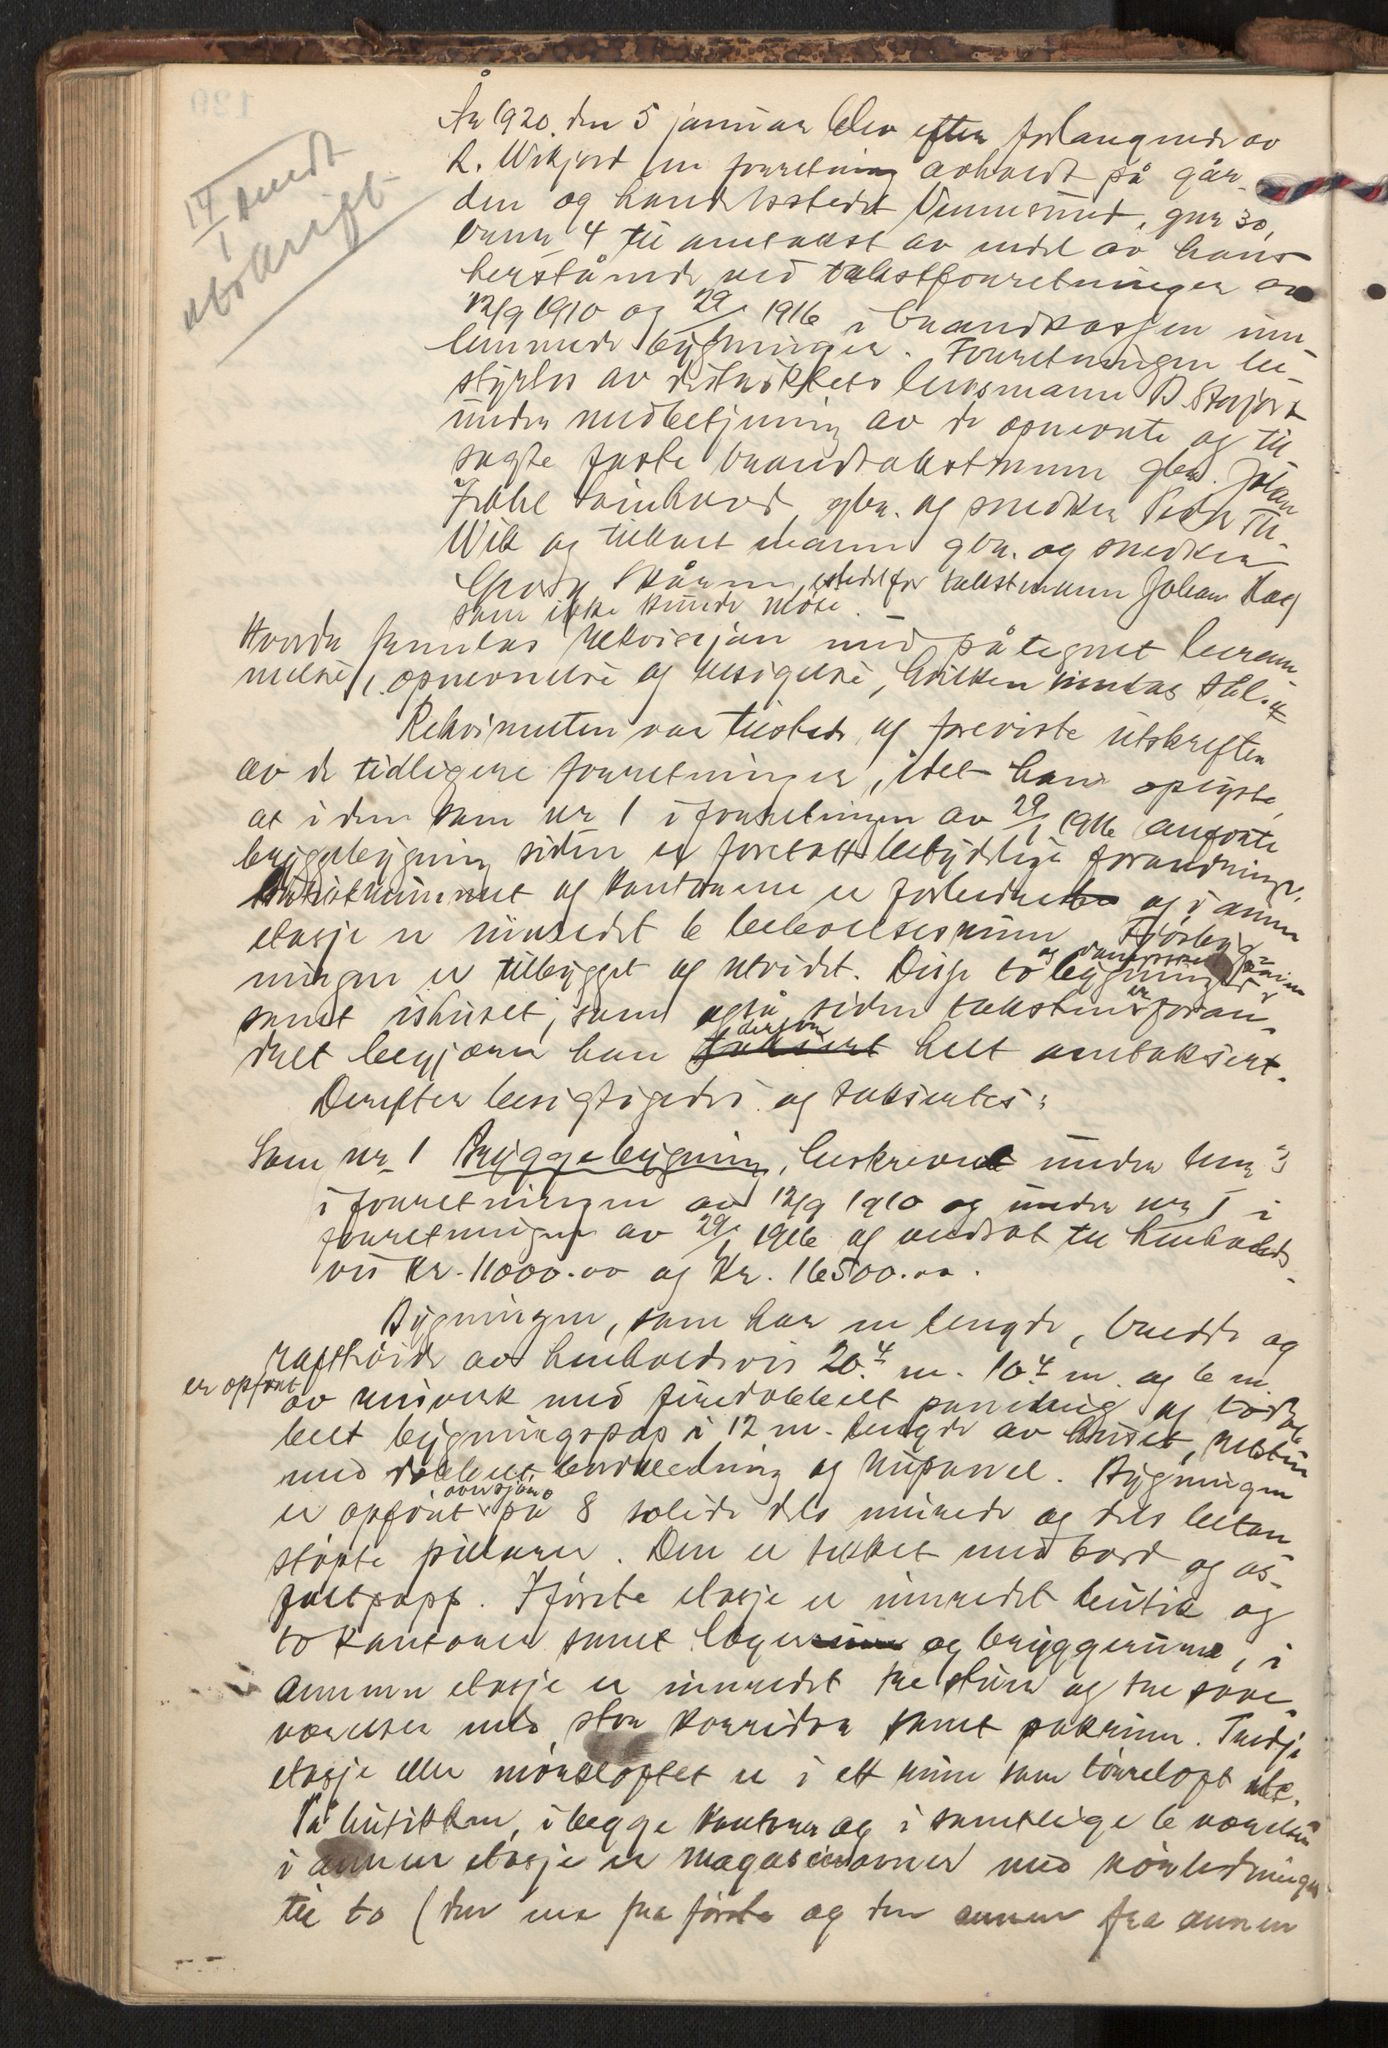 14/1 sendt
utskrift
År 1920 den 5 januar blev efter forlangende av
L. Wikjord en forretning avholdt på går-
den og handelsstedet Vennesund, gnr 30,
bnr 4 til omtakst av endel av hans
herstående ved takstforretninger av
12/9 1910 og 29/1 1916 i brandkassen inn-
lemmede bygninger. Forretningen be-
styrtes av distriktets lensmann
under medbetjening av de opnevnte og til-
sagte faste brandtakstmenn gbr. Johan
gbr. og snedker Peder Th.
Wik og tilkalt mann gbr. og snedker
Georg Skåren, istedetfor takstmann Johan
som ikke kunde møte.
Hvorda fremlas rekvisisjon med påtegnet beram-
melse, opnevnelse og
Rekvirenten var tilstede og foreviste utskriften
av de tidligere forretninger, idet han oplyste,
at i den som nr 1 i forretningen av 29/1 1916 anførte
bryggebygning siden er foretatt betydelige forandringer,
butikrummet og kontorene er forbedret og i annen
etasje er innredet 6 beboelsesrum. Fjøsbyg-
ningen er tilbygget og utvidet. Disse to bygninger
samt ishuset, som også siden taksten er foran-
dret begjærer han derfor helt omtaksert.
Derefter besigtigedes og taksertes:
Som nr 1 Bryggebygning, beskrevet under bnr 3
i forretningen av 12/9 1910 og under nr 1 i
forretningen av 29/1 1916 og verdsat til henholds-
vis kr. 11000.00 og kr. 16500.00.
Bygningen, som har en lengde, bredde og
rafthøide av henholdsvis 20.4 m. 10.4 m. og 6 m.
er opført
av reisverk med firedobbelt paneling og to dob-
belt bygningspap i 12 m. lengde av huset, resten
med dobbelt bordkledning og rupanel. Bygningen
er opført på 8 solide dels murede og dels beton
støpte pillarer. Den er tekket med bord og as-
faltpapp. I første etasje er innredet butik og
to kontorer samt lager og bryggerum, i
annen etasje er innredet tre stuer og tre sove-
værelser med stor korridor samt pakrum. Tredje
etasje eller mørkeloftet er i ett rum som tørreloft
På butikken, i begge kontorer og i samtlige 6 værelser
i annen etasje er magasinovner med rørledninger
til to (den ene fra første og den annen fra annen